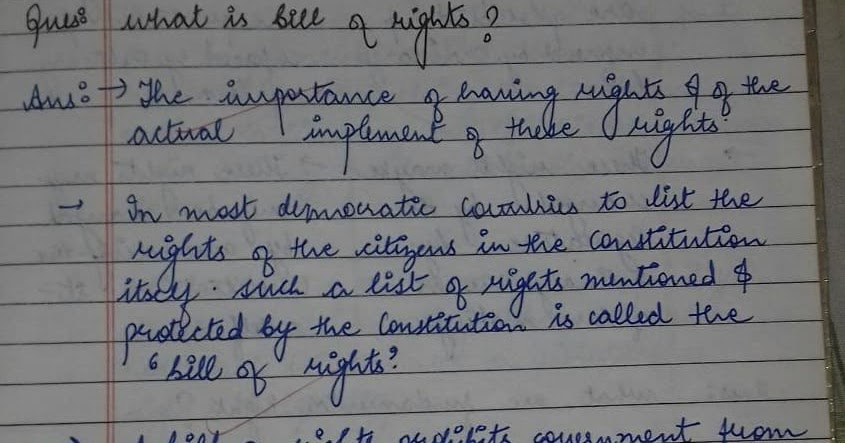 Ques: what is bill of rights?
Ans: → The importance of having rights & of the
actual implement of these rights.
→ In most democratic countries to list the
rights of the citizens in the constitution
itself. such a list of rights mentioned &
protected by the constitution is called the
'bill of rights?
bill rights prohibits government from